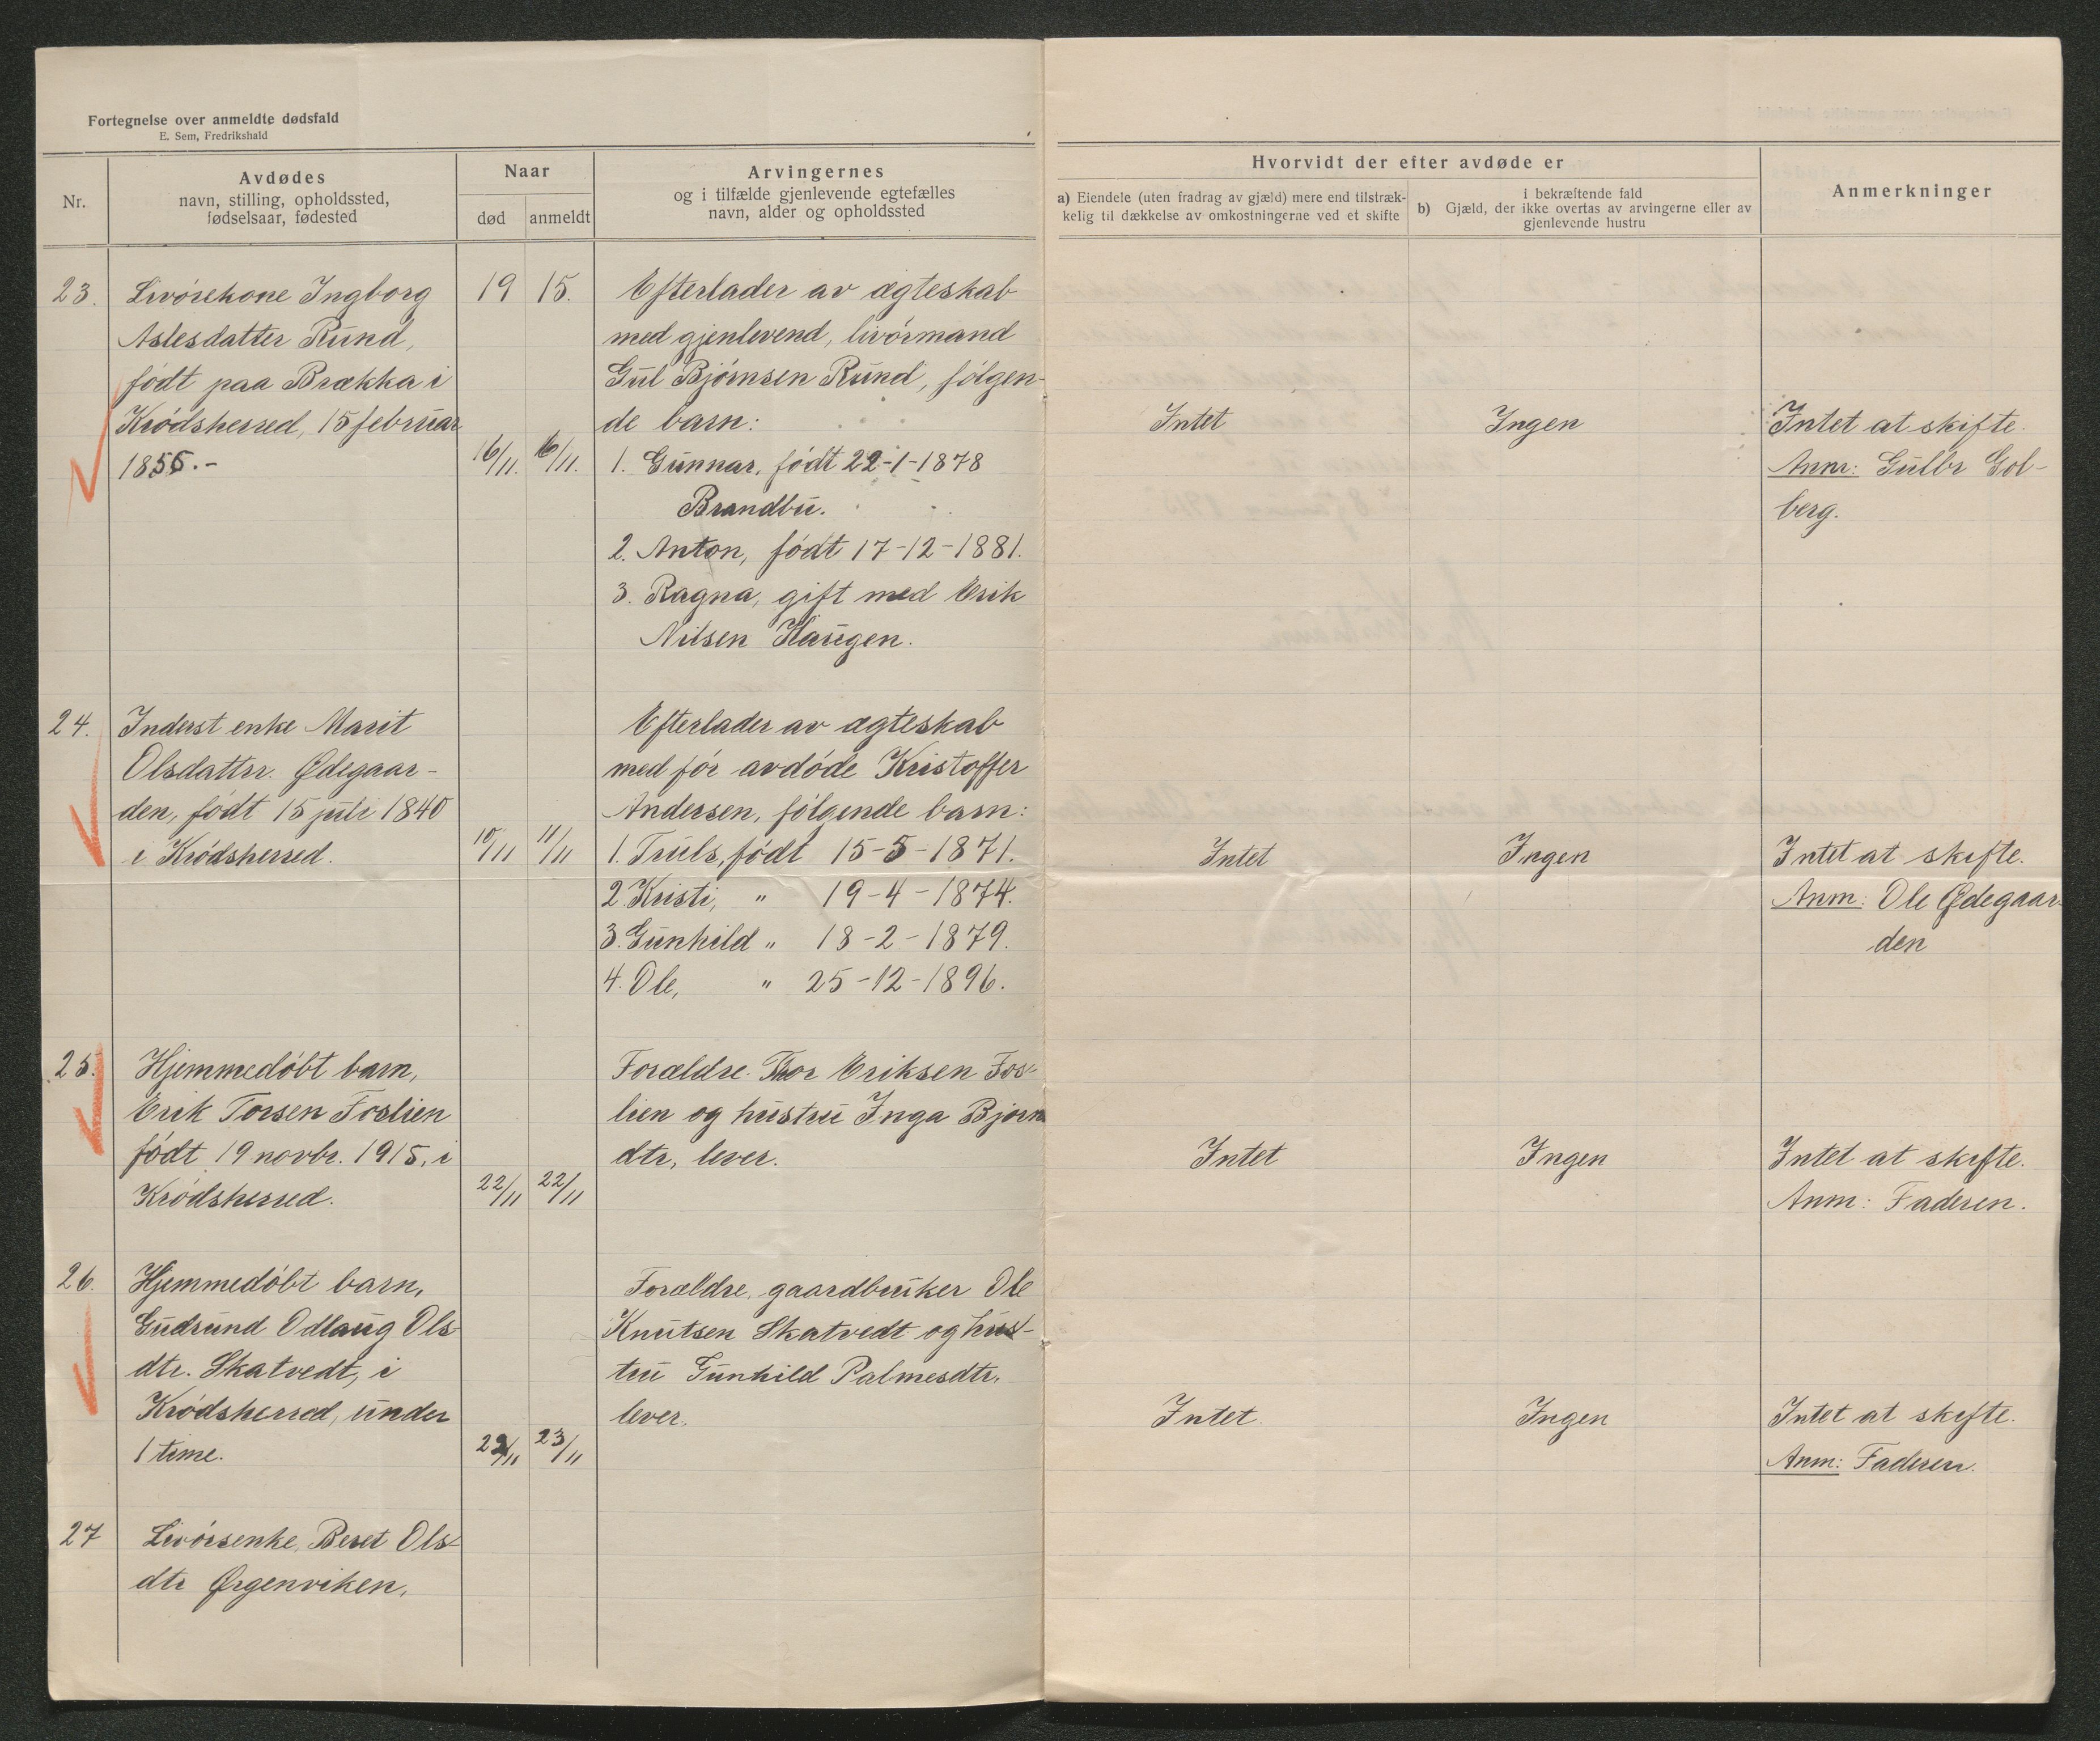 Fortegnelse over anmeldte dødsfald
E. Sem, Fredrikshald
Nr.
Avdødes
navn, stilling, opholdssted,
fødselsaar, fødested
Naar
død
anmeldt
Arvingernes
og i tilfælde gjenlevende egtefælles
navn, alder og opholdssted
Hvorvidt der efter avdøde er
a) Eiendele (uten fradrag av gjæld) mere end tilstræk-
kelig til dækkelse av omkostningerne ved et skifte
i bekræftende fald
b) Gjæld, der ikke overtas av arvingerne eller av
gjenlevende hustru
Anmerkninger
23.
Livörekone Ingborg
Aslesdatter Rund,
født paa Brækka i
Krødsherred, 15 februar
1855.-
19 15.
16/11. 16/11.
Efterlader av ægteskab
med gjenlevend, livörmand
Gul Bjørnsen Rund, følgen-
de barn:
1. Gunnar, født 22-1-1878
Brandbu.
2. Anton, født 17-12-1881.
3. Ragna, gift med Erik
Nilsen Haugen.
Intet
Ingen
Intet at skifte.
Anm: Gulbr Gol-
berg.
24.
Inderst enke Marit
Olsdatter. Ødegaar-
den, født 15 juli 1840
i Krødsherred.
10/11 11/11
Efterlader av ægteskab
med før avdøde Kristoffer
Andersen, følgende barn:
1. Truls, født 15-5-1871.
2. Kristi, " 19-4-1874.
3. Gunhild " 18-2-1879.
4. Ole, " 25-12-1896.
Intet
Ingen
Intet at skifte.
Anm: Ole Ødegaar-
den
25.
Hjemmedøbt barn,
Erik Torsen Foslien
født 19 novbr. 1915, i
Krødsherred.
22/11 22/11
Forældre. Thor Eriksen Fos-
lien og hustru Inga Bjørn
dtr, lever.
Intet
Ingen
Intet at skifte.
Anm: Faderen.
26.
Hjemmedøbt barn,
Gudrund Odlaug Ols-
dtr. Skatvedt, i
Krødsherred, under
1 time.
23/11
Forældre, gaardbruker Ole
Knutsen Skatvedt og hus-
tru Gunhild Palmesdtr,
lever.
Intet.
Ingen
Intet at skifte.
Anm: Faderen.
27
Livörsenke, Beret Ols-
dtr Ørgenviken,